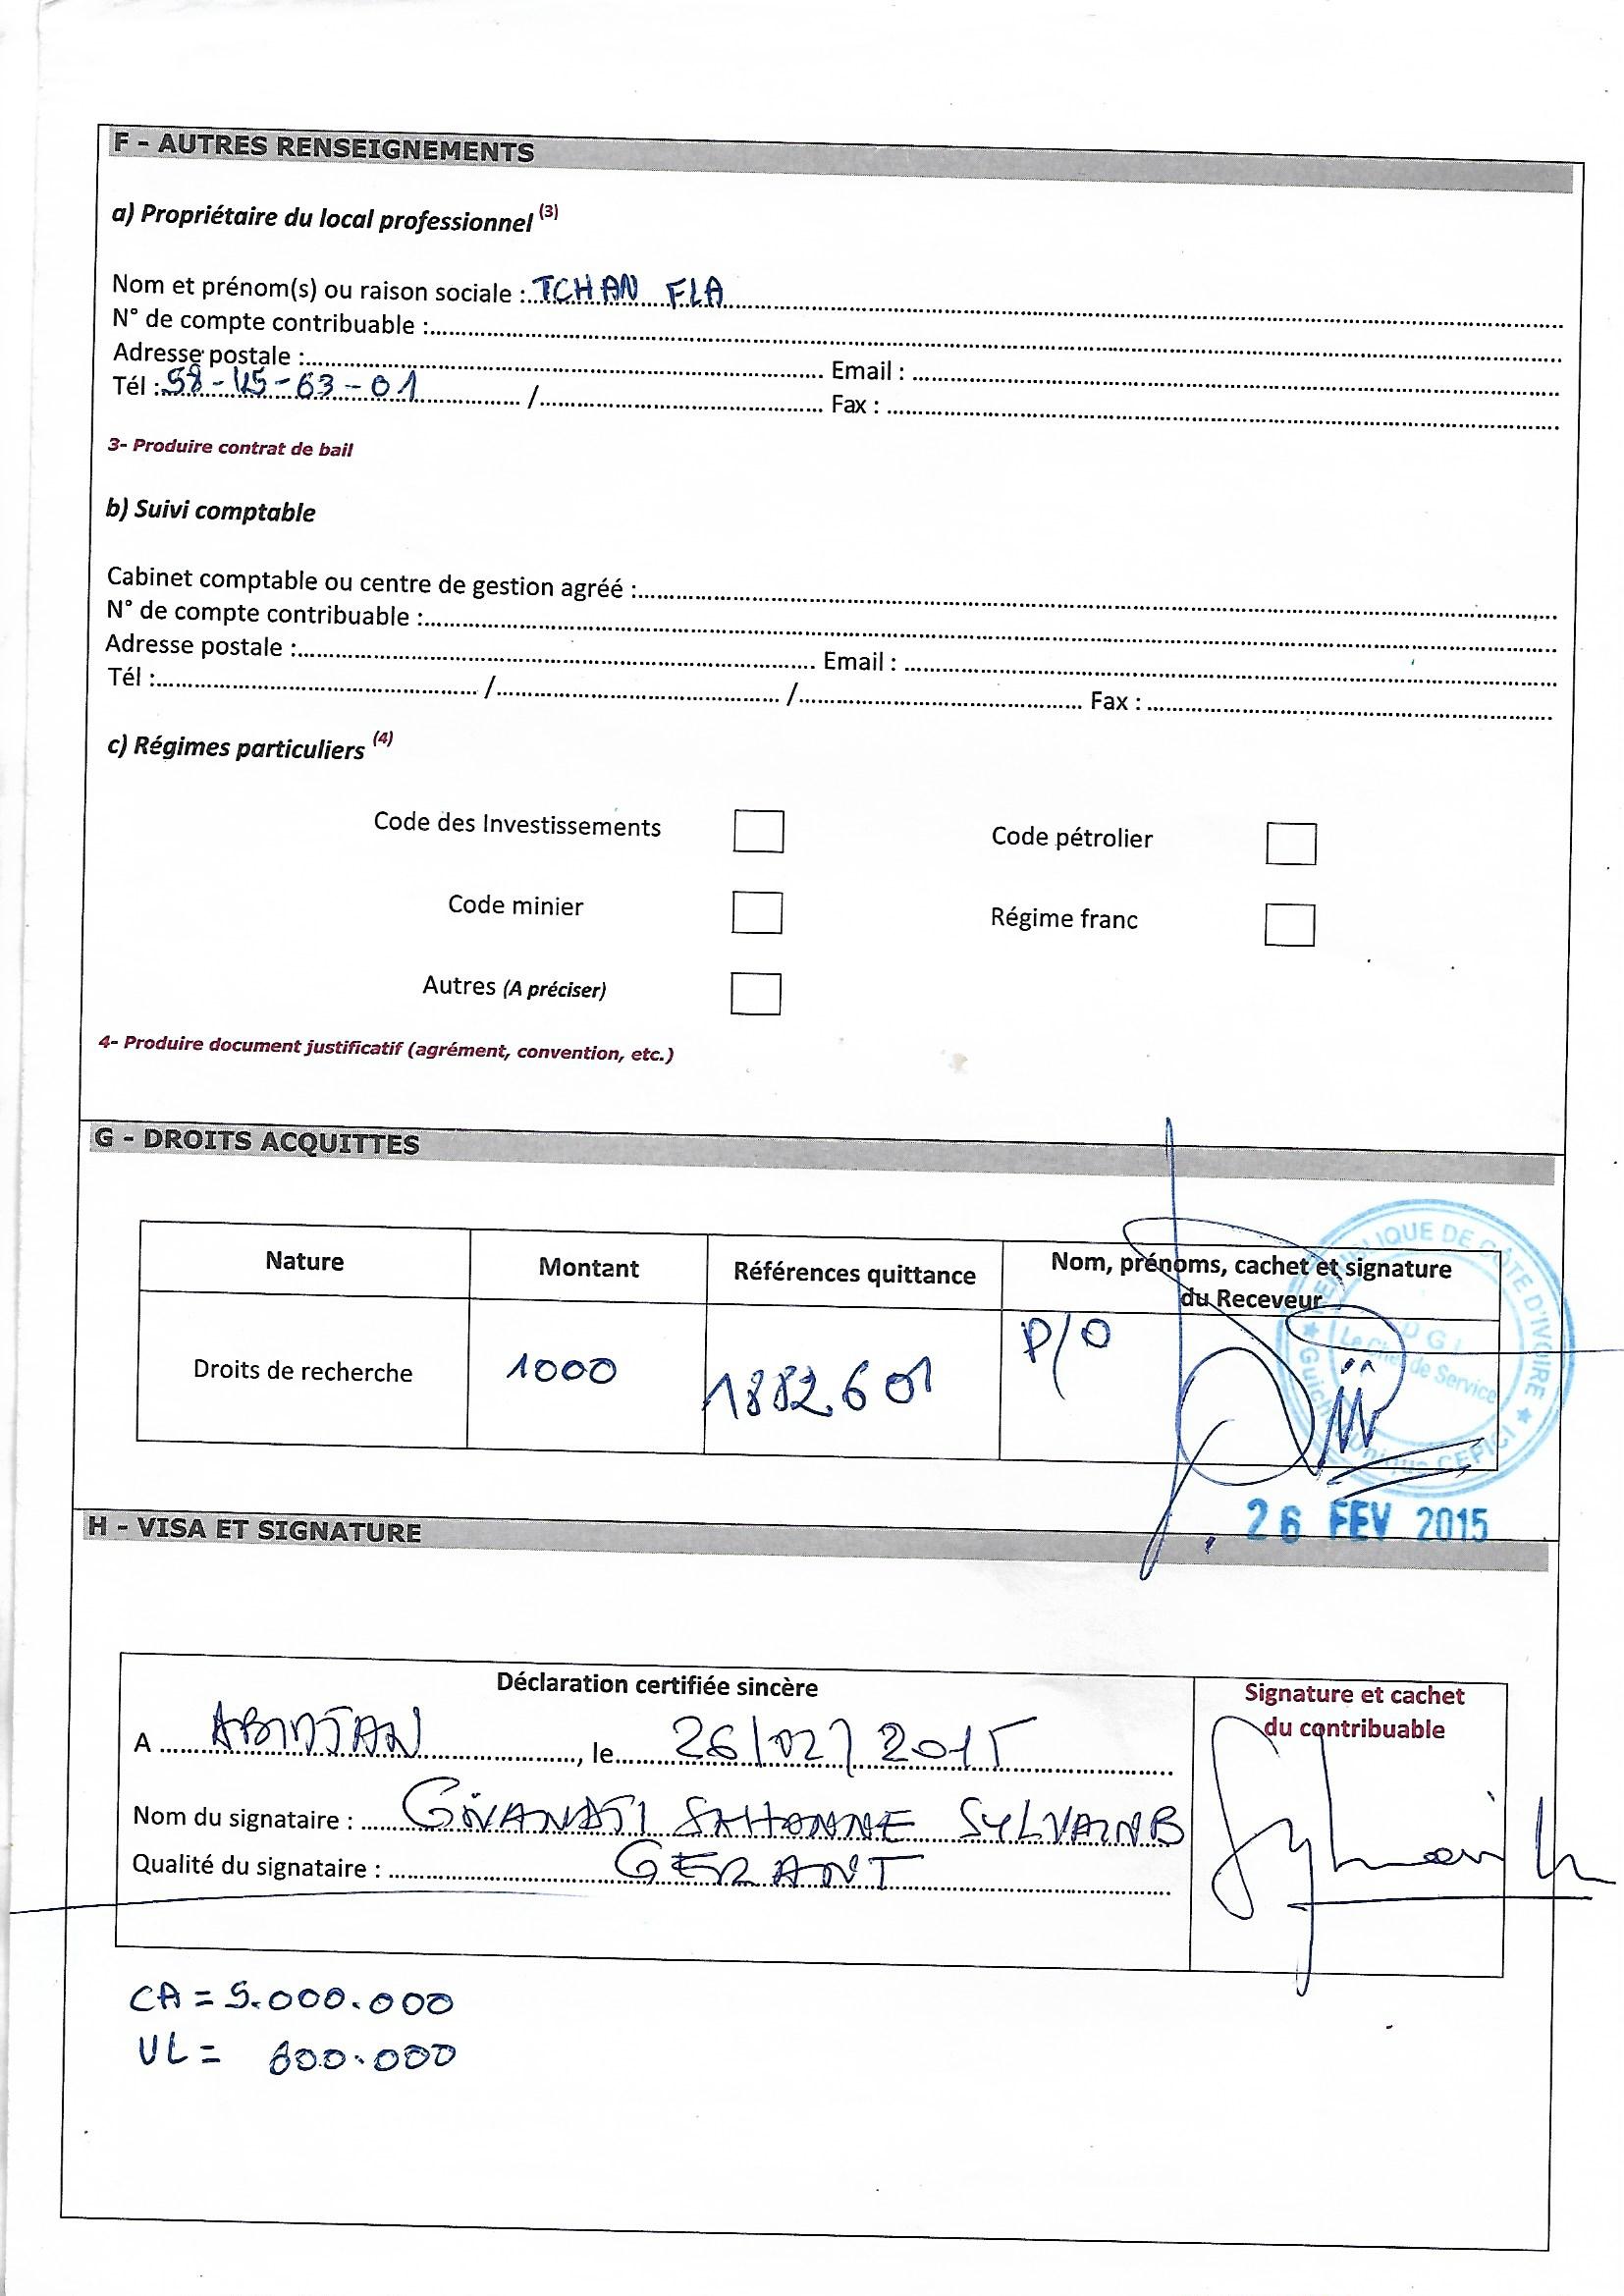 F - AUTRES RENSEIGNEMENTS
a) Propriétaire du local professionnel (3)
Nom et prénom(s) ou raison sociale : TCHAN FLA
N° de compte contribuable :
Adresse postale : Email :
Tél : 58-45-63-01 / Fax :
3- Produire contrat de bail
b) Suivi comptable
Cabinet comptable ou centre de gestion agréé :
N° de compte contribuable :
Adresse postale : Email :
Tél : / / Fax :
c) Régimes particuliers (4)
Code des Investissements Code pétrolier
Code minier Régime franc
Autres (A préciser)
4- Produire document justificatif (agrément, convention, etc.)
G - DROITS ACQUITTES
Nature Montant Références quittance Nom, prénoms, cachet et signature du Receveur
Droits de recherche 1000 1882601 P/O
DGI
Le Chef de Service
26 FEV 2015
H - VISA ET SIGNATURE
Déclaration certifiée sincère
Signature et cachet
du contribuable
A ABIDJAN, le 26/02/2015
Nom du signataire : SYLVAIN
Qualité du signataire : GERANT
CA = 5.000.000
VL = 600.000